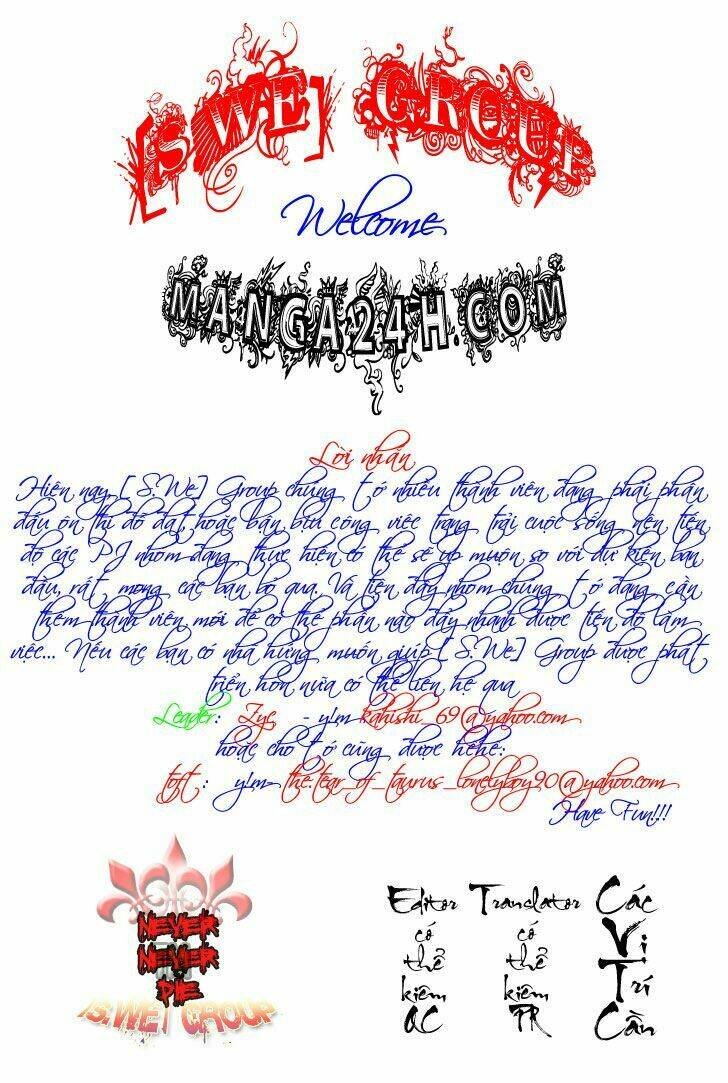 [S.WE] GROUP
Welcome
MANGA24H.COM
Lời nhắn
Hiện nay [S.We] Group chúng tớ nhiều thành viên đang phải phấn
đấu ôn thi đỗ đạt hoặc bận bịu công việc trang trải cuộc sống nên tiến
độ các PJ nhóm đang thực hiện có thể sẽ up muộn so với dự kiến ban
đầu, rất mong các bạn bỏ qua. Và tiện đây nhóm chúng tớ đang cần
thêm thành viên mới để có thể phần nào đẩy nhanh được tiến độ làm
việc... Nếu các bạn có nhã hứng muốn giúp [S.We] Group được phát
triển hơn nữa có thể liên hệ qua
Leader: Zyc - y!m kahishi_69@yahoo.com
hoặc cho tớ cũng được hêhê:
toft : y!m- the.tear_of_taurus_lonelyboy90@yahoo.com
Have Fun!!!
NEVER
NEVER
DIE
[S.WE] GROUP
Editor
có
thể
kiêm
QC
Translator
có
thể
kiêm
PR
Các
Vị
Trí
Cần